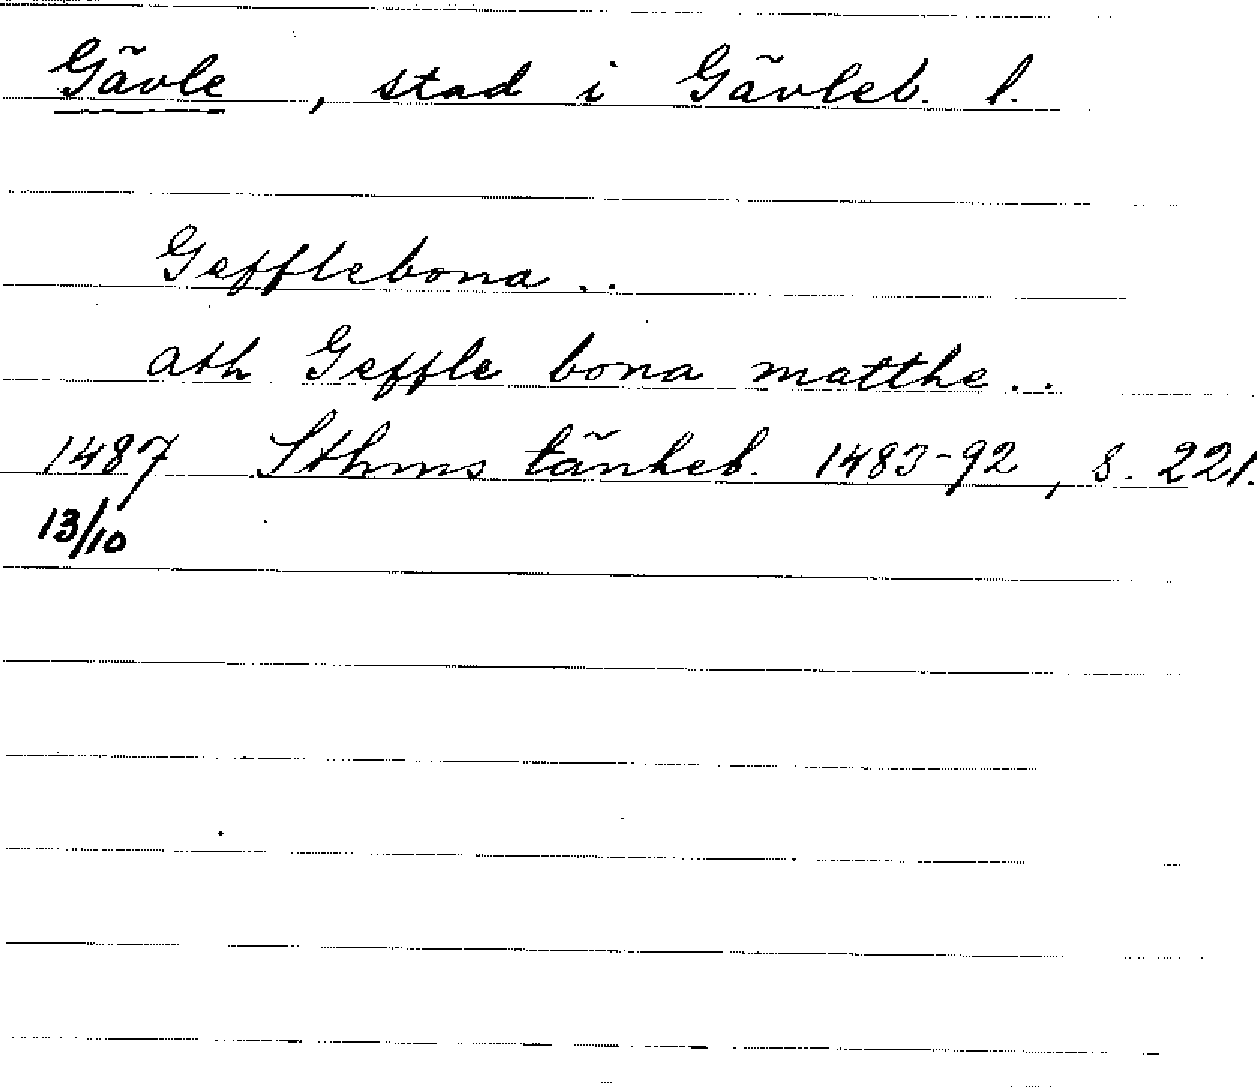 Gävle, stad i Gävleb. l.
Gefflebona..
ath Geffle bona matthe..
1487 Sthms tänkeb. 1483-92, s. 221.
13/10